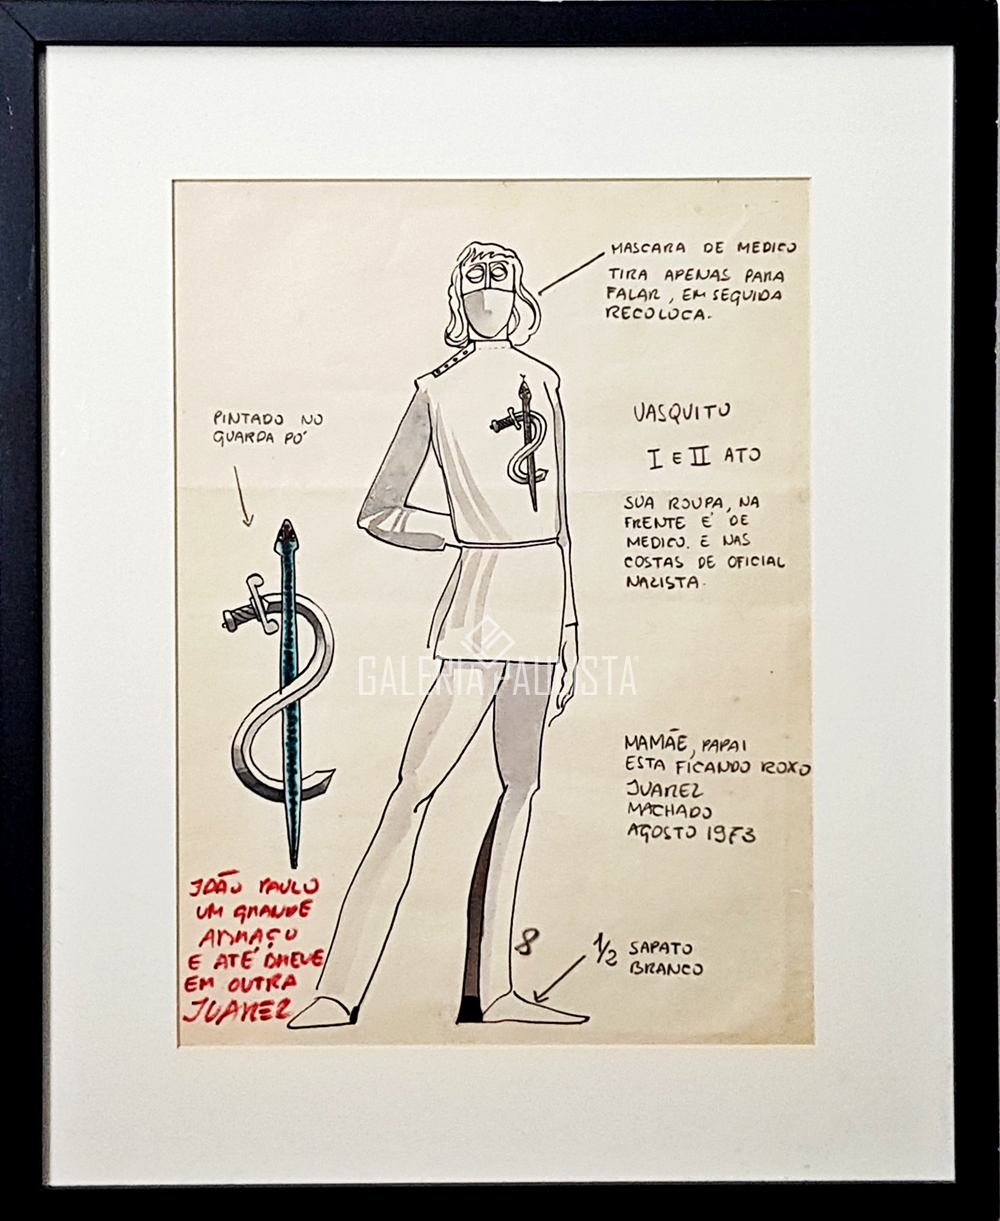 MASCARA DE MEDICO
TIRA APENAS PARA
FALAR, EM SEGUIDA
RECOLOCA.
PINTADO NO
GUARDA PÓ
VASQUITO
I E II ATO
SUA ROUPA, NA
FRENTE É DE
MEDICO. E NAS
COSTAS DE OFICIAL
NAZISTA.
GALERIA PAULISTA
MAMÃE, PAPAI
ESTA FICANDO ROXO
JUAREZ
MACHADO
AGOSTO 1973
JOÃO PAULO
UM GRANDE
ABRAÇO
E ATÉ BREVE
EM OUTRA
JUAREZ
8
1/2 SAPATO
BRANCO